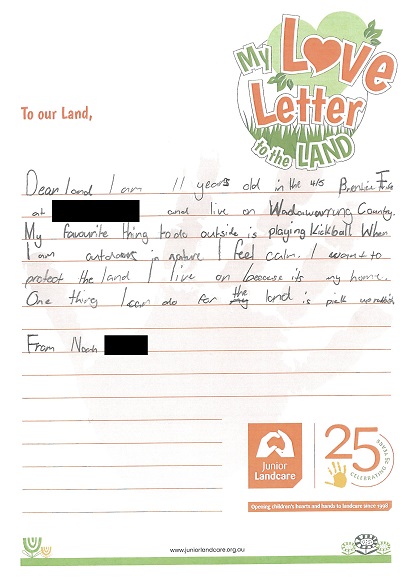 My Love
Letter
to the LAND
To our Land,
Dear land I am 11 years old in the 4/5
at and live on Wadawurrung Country.
My favourite thing to do outside is playing Kickball When
I am outdoors in nature I feel calm. I want to
protect the land I live on because its my home.
One thing I can do for the land is pick up rubbish
From Noah
Junior
Landcare
25
CELEBRATING 25 YEARS
Opening children's hearts and hands to landcare since 1998
www.juniorlandcare.org.au